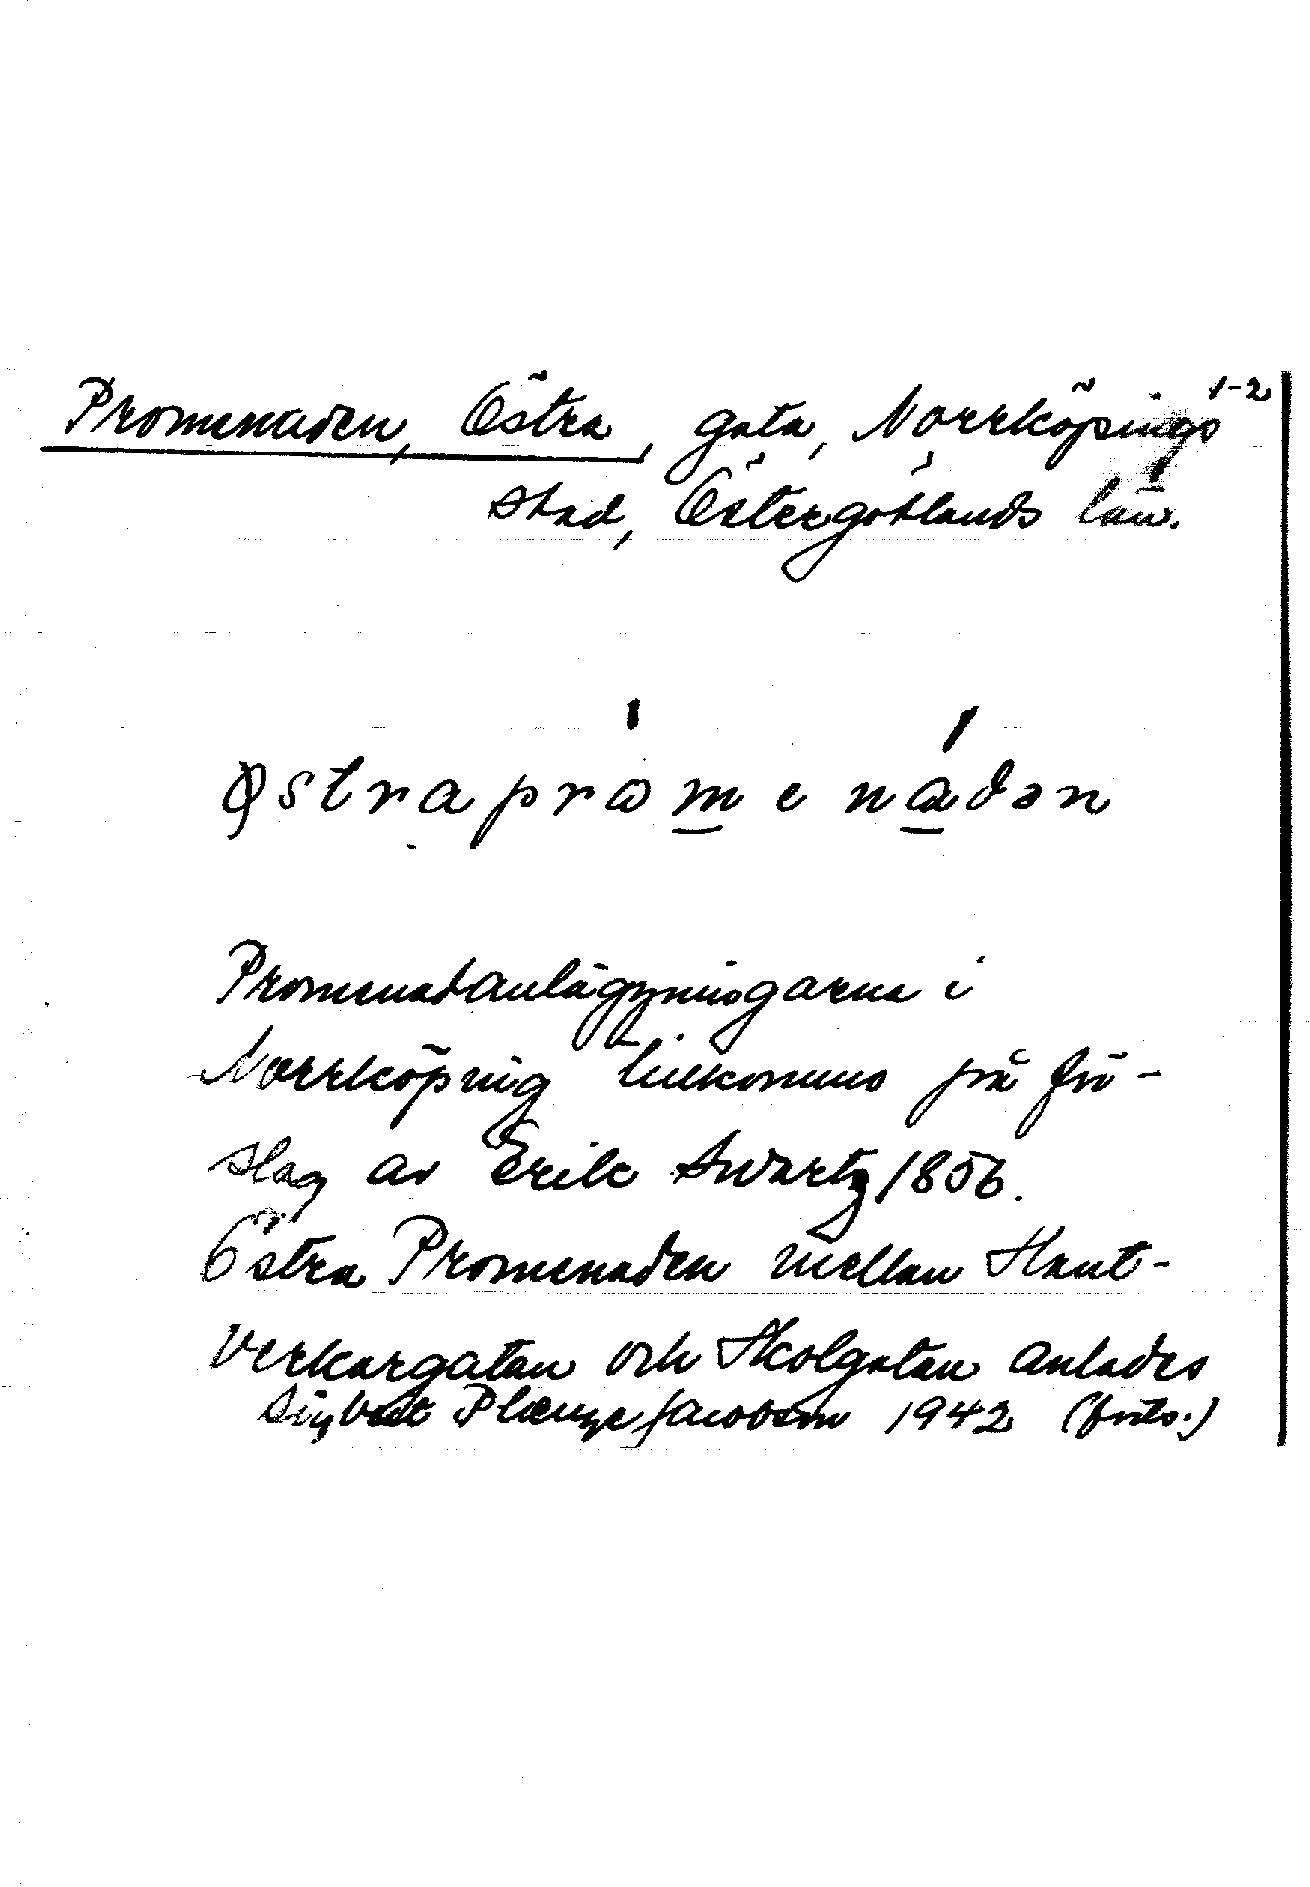 1-2
Promenaden, Östra, gata, Norrköpings
stad, Östergötlands län.
Østrapròmenádən
Promenadanläggningarna i
Norrköping tillkommo på för-
slag av Erik Swartz 1856.
Östra Promenaden mellan Hant-
verkargatan och Skolgatan anlades
Sigbrit Plænge Jacobson 1942 (forts.)